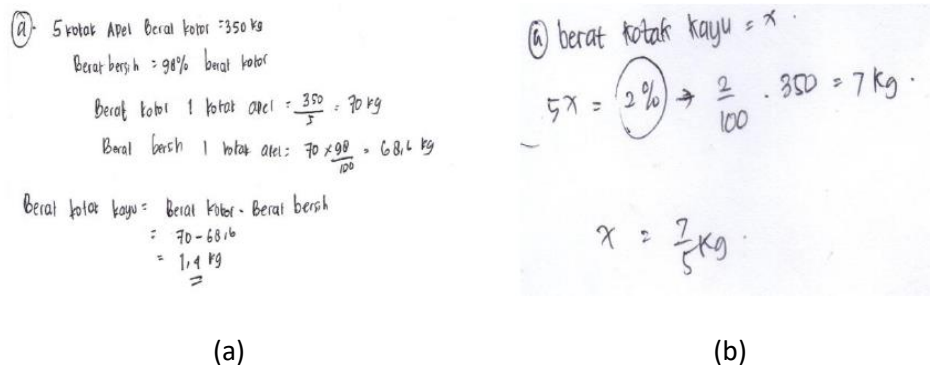 (a). 5 kotak Apel Berat kotor = 350 kg
Berat bersih = 98% berat kotor
Berat kotor 1 kotak apel = 350/5 = 70 kg
Berat bersih 1 kotak apel = 70 x 98/100 = 68,6 kg
Berat kotak kayu = Berat kotor - Berat bersih
= 70 - 68,6
= 1,4 kg
(a)
(a) berat kotak kayu = x.
5x = 2% → 2/100 . 350 = 7 kg.
x = 7/5 kg.
(b)